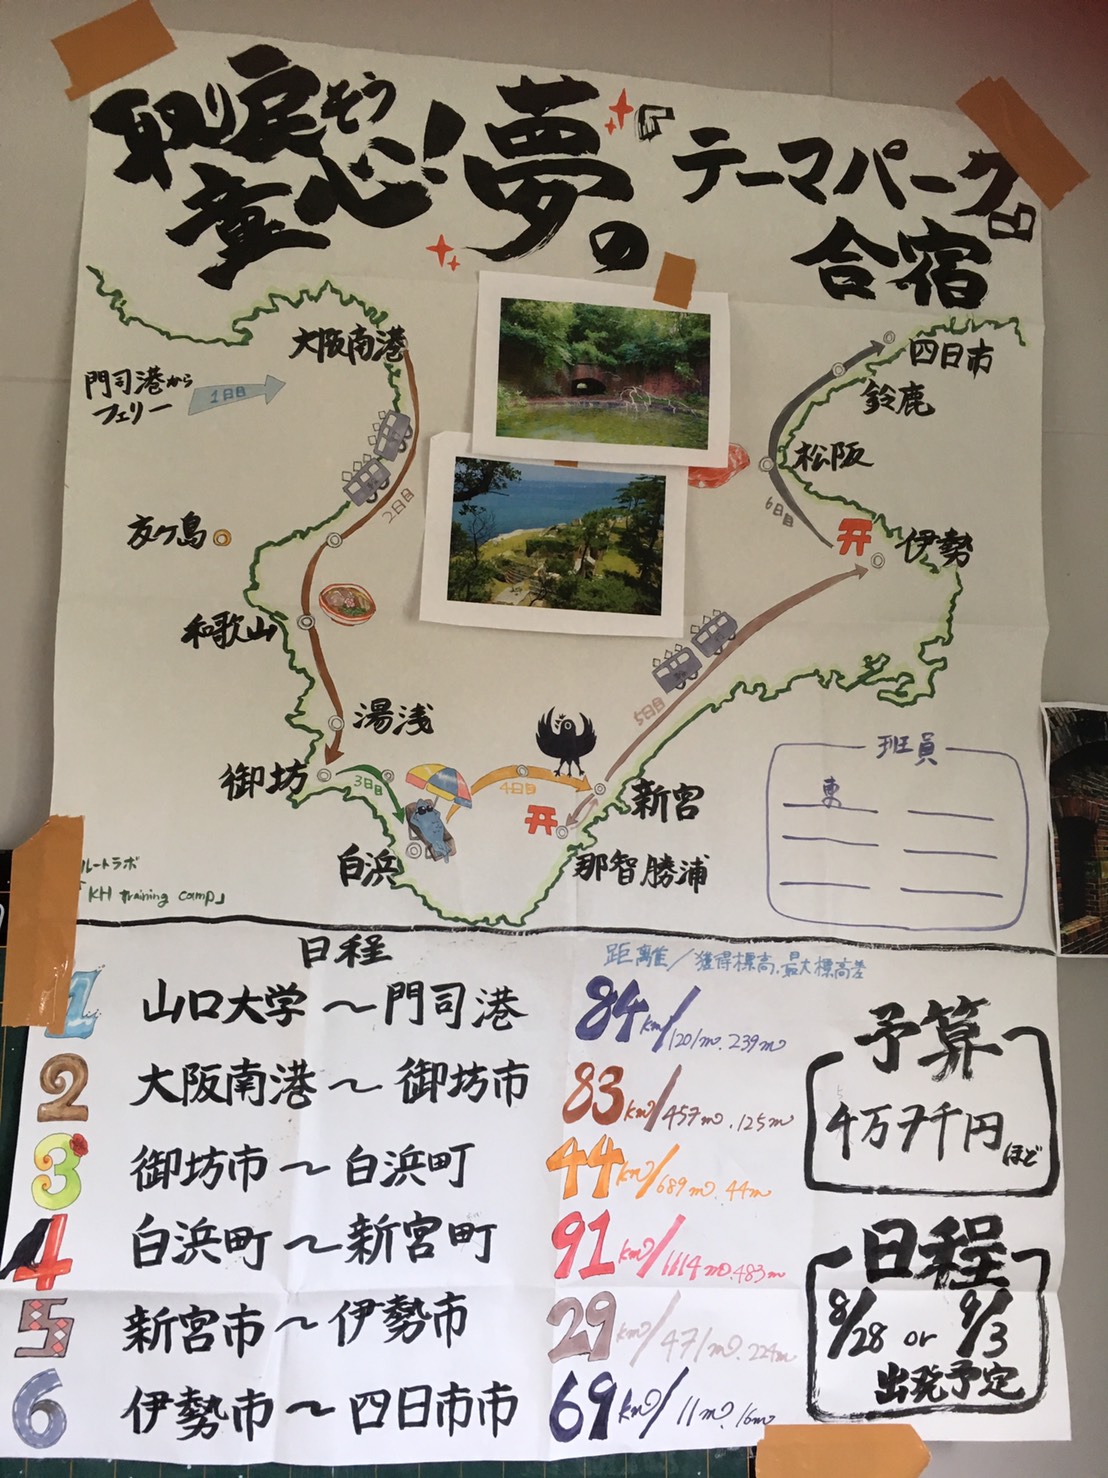 取り戻そう
童心！夢の
『テーマパーク』
合宿
大阪南港
門司港から
フェリー
1日目
2日目
友ヶ島
和歌山
湯浅
御坊
3日目
白浜
4日目
新宮
那智勝浦
5日目
伊勢
6日目
松阪
鈴鹿
四日市
班員
東
ルートラボ
「KH training camp」
日程
距離／獲得標高、最大標高差
1 山口大学～門司港 84km/1201m.239m
2 大阪南港～御坊市 83km/457m.125m
3 御坊市～白浜町 44km/689m.44m
4 白浜町～新宮町 91km/1114m.483m
5 新宮市～伊勢市 29km/471m.224m
6 伊勢市～四日市市 69km/11m.16m
予算
4万7千円ほど
日程
8/28 or 9/3
出発予定